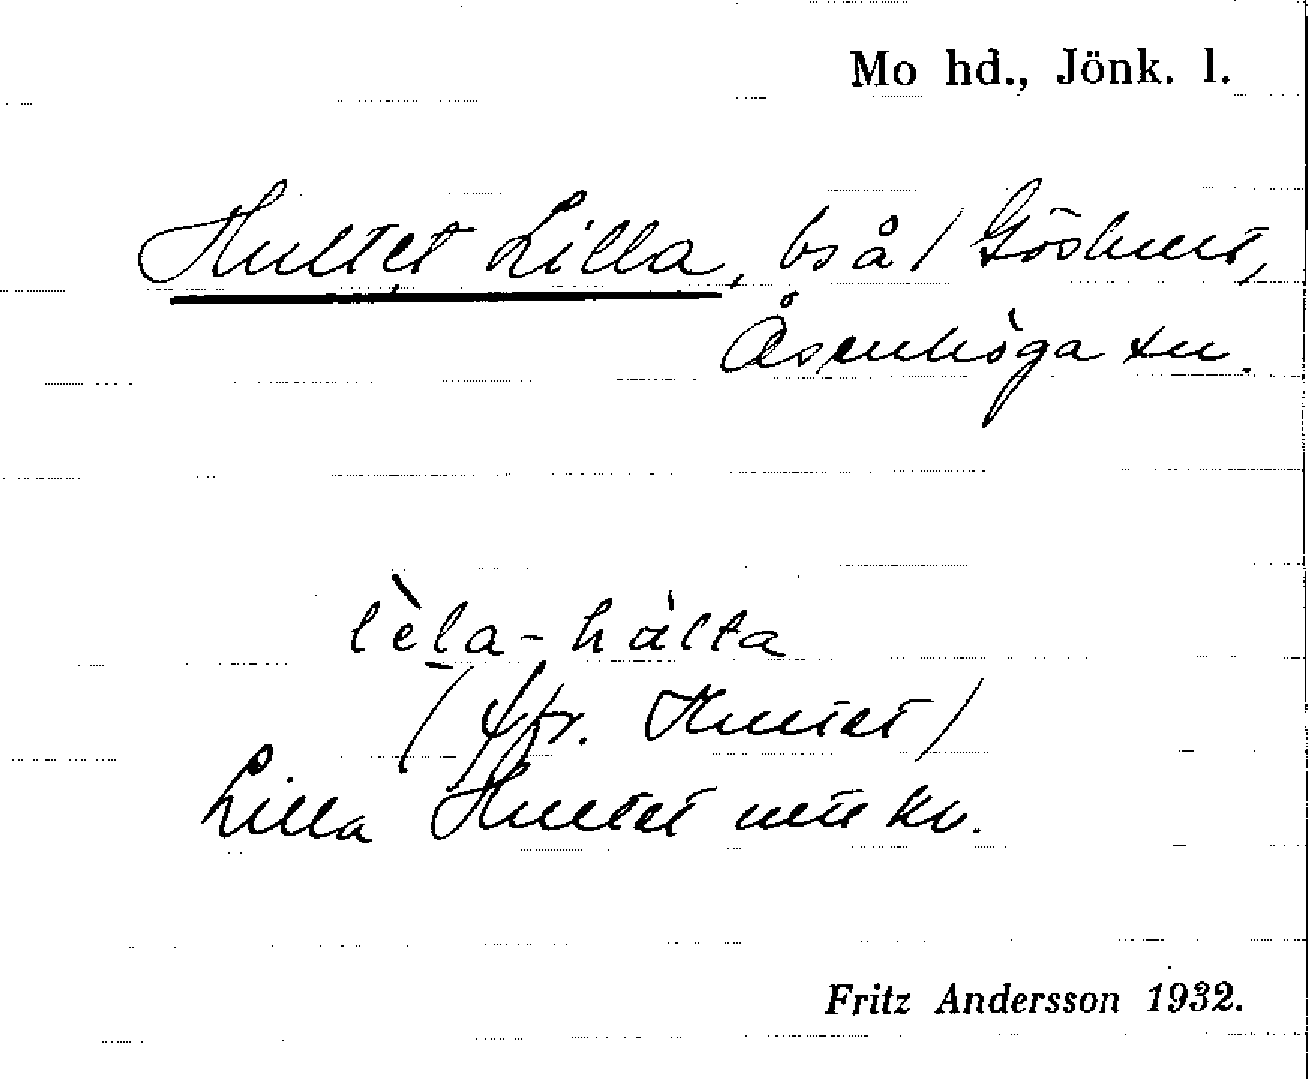 Mo hd., Jönk. l.
Hultet Lilla, bs å / Göshult,
Åsenhöga sn.
lèla-hálta
(jfr. Hultet)
Lilla Hultet utt kv.
Fritz Andersson 1932.